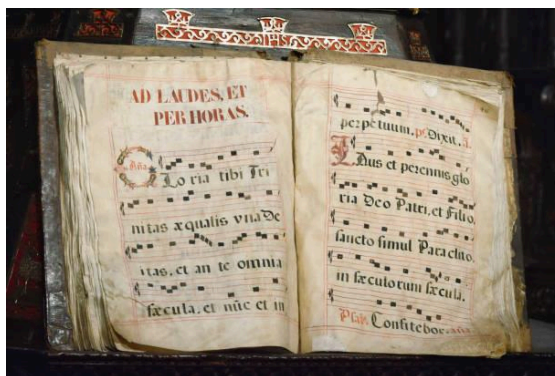 AD LAUDES, ET
PER HORAS.
Aña.
Glo ria tibi Tri
nitas æqualis vna De
itas, et an te omnia
sæcula, et nũc et in
perpetuum. ps. Dixit. A.
Laus et perennis glo
ria Deo Patri, et Filio,
sancto simul Paraclito,
in sæculorum sæcula.
Psal. Confitebor. aña
IHS